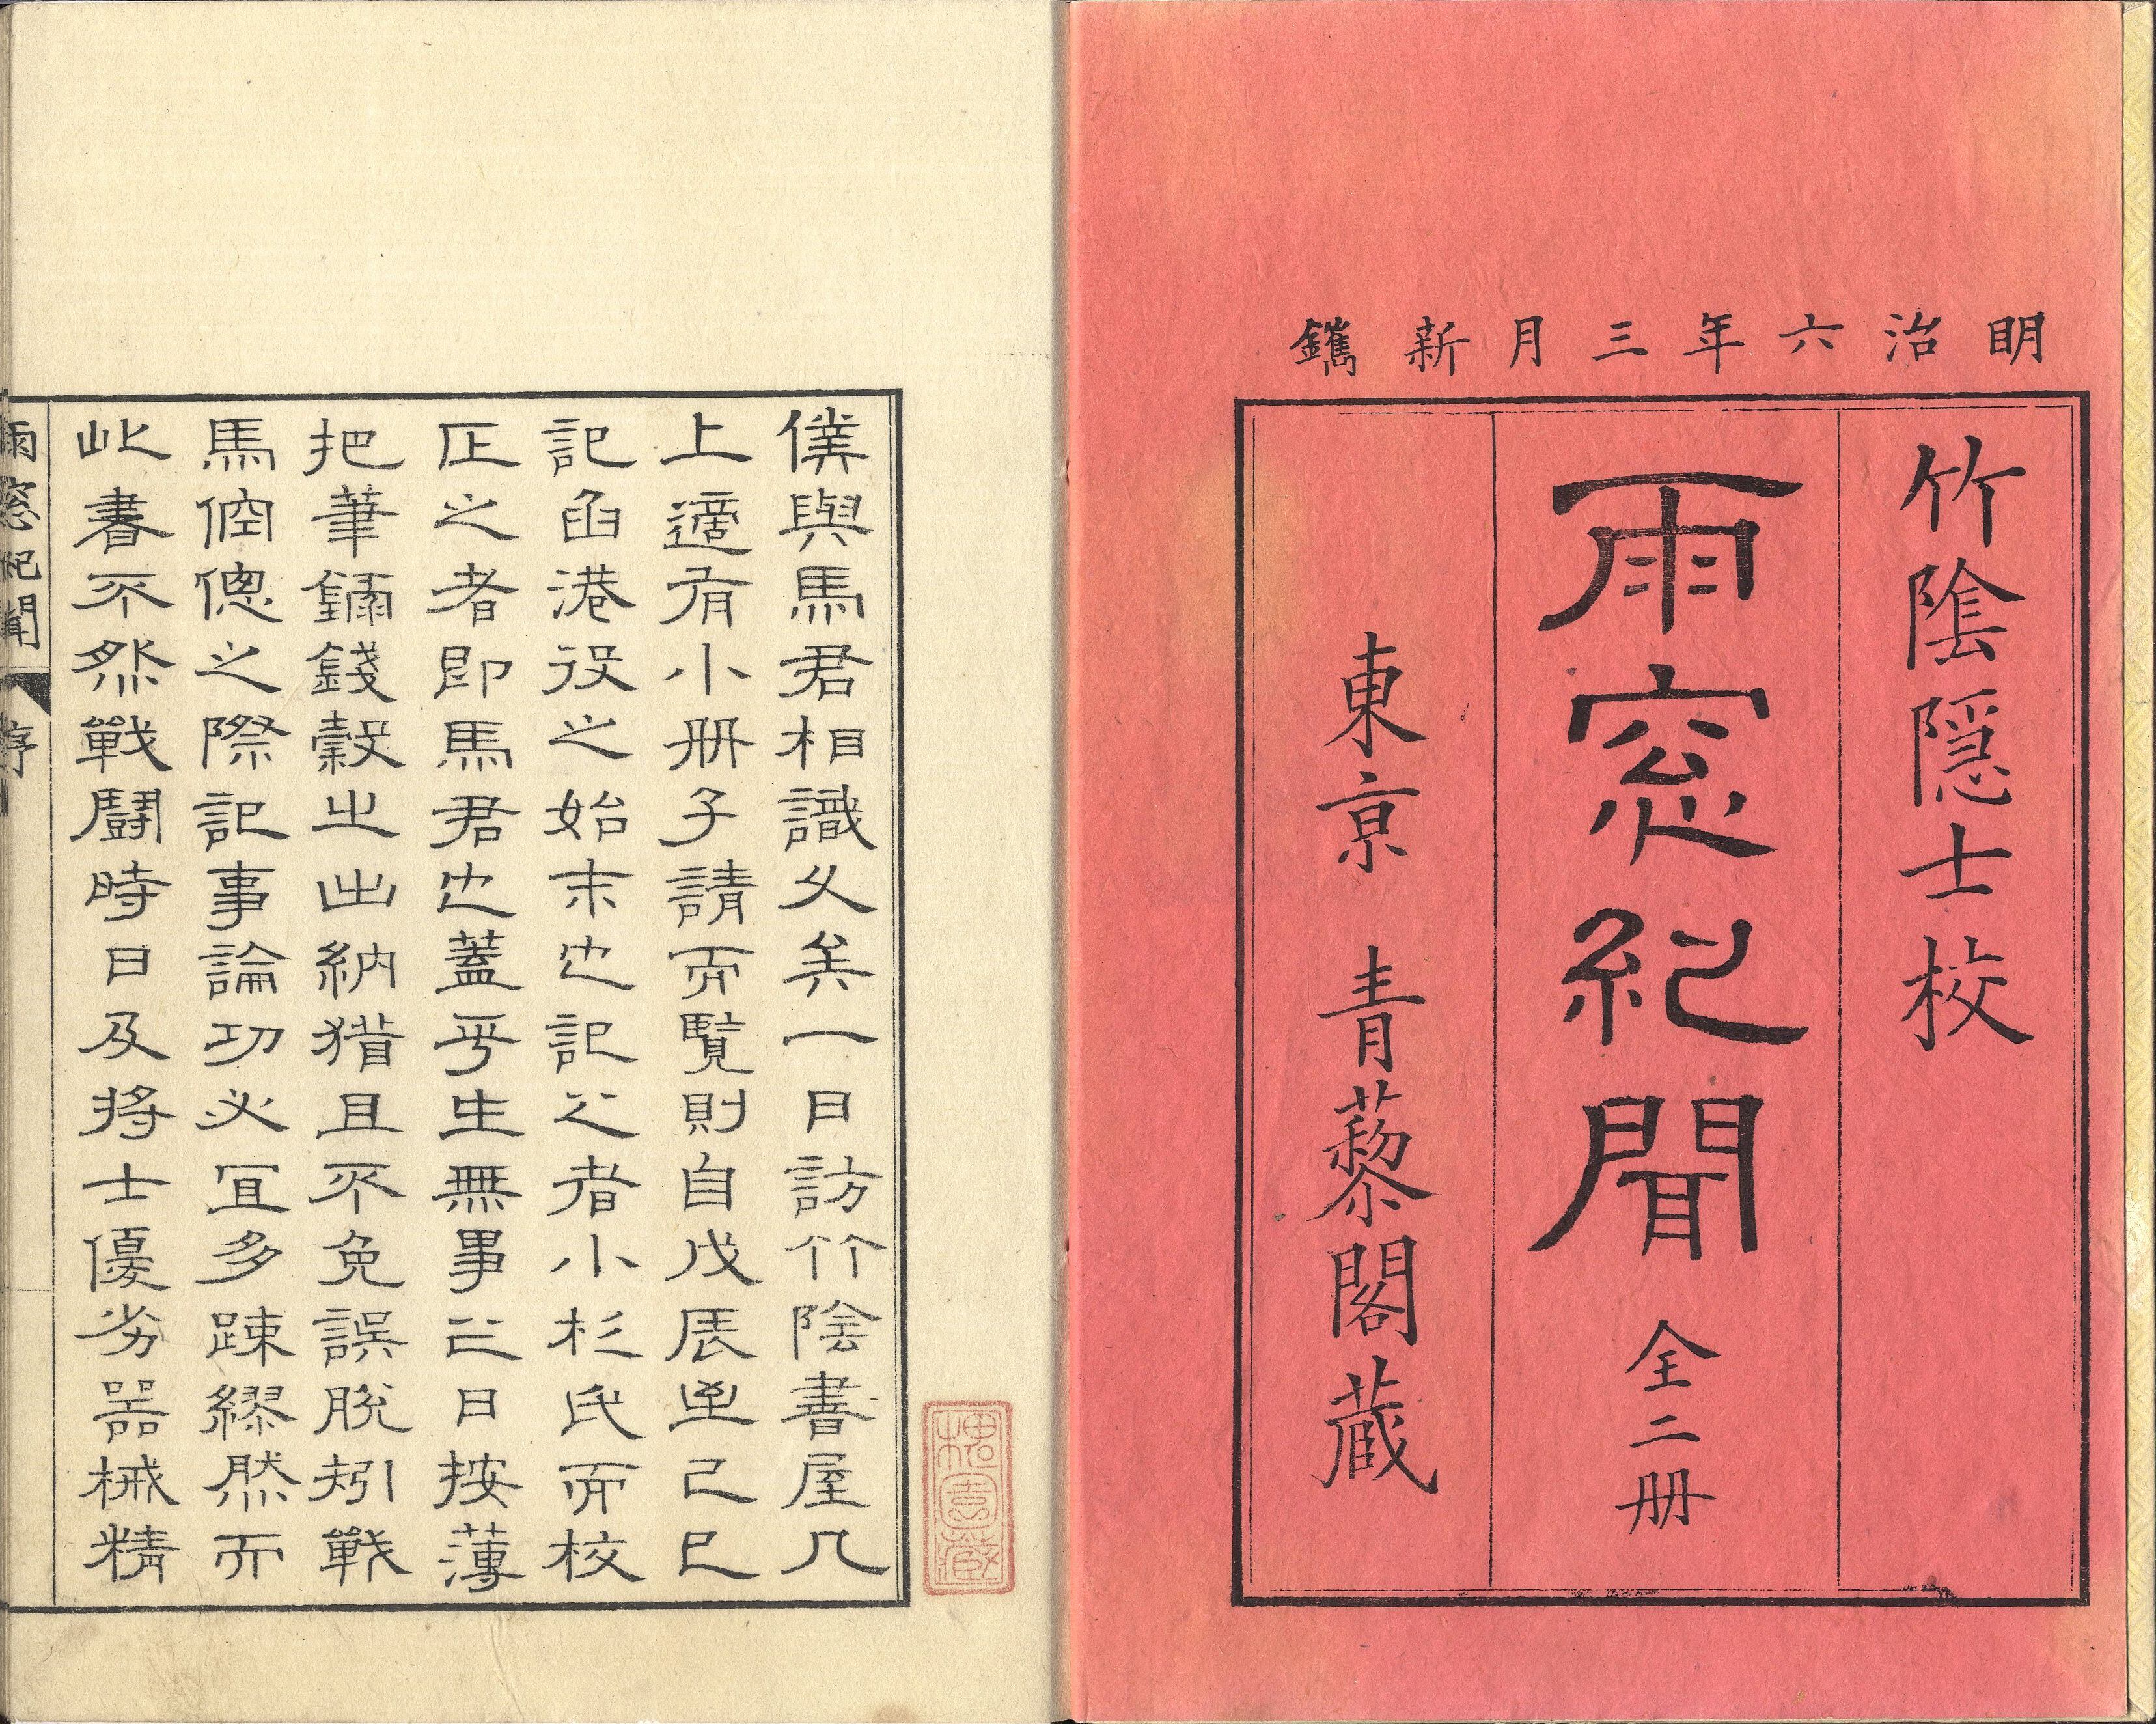 明治六年三月新鐫
竹陰隱士校
雨窓紀聞 全二册
東京 青藜閣藏
僕與馬君相識久矣一日訪竹陰書屋几
上適有小册子請而覽則自戊辰至己巳
記函港役之始末也記之者小杉氏而校
正之者即馬君也蓋平生無事之日按薄
把筆錙錢穀之出納猶且不免誤脫矧戰
馬倥傯之際記事論功必冝多疎繆然而
此書不然戰鬪時日及將士優劣器械精
雨窓紀聞 序